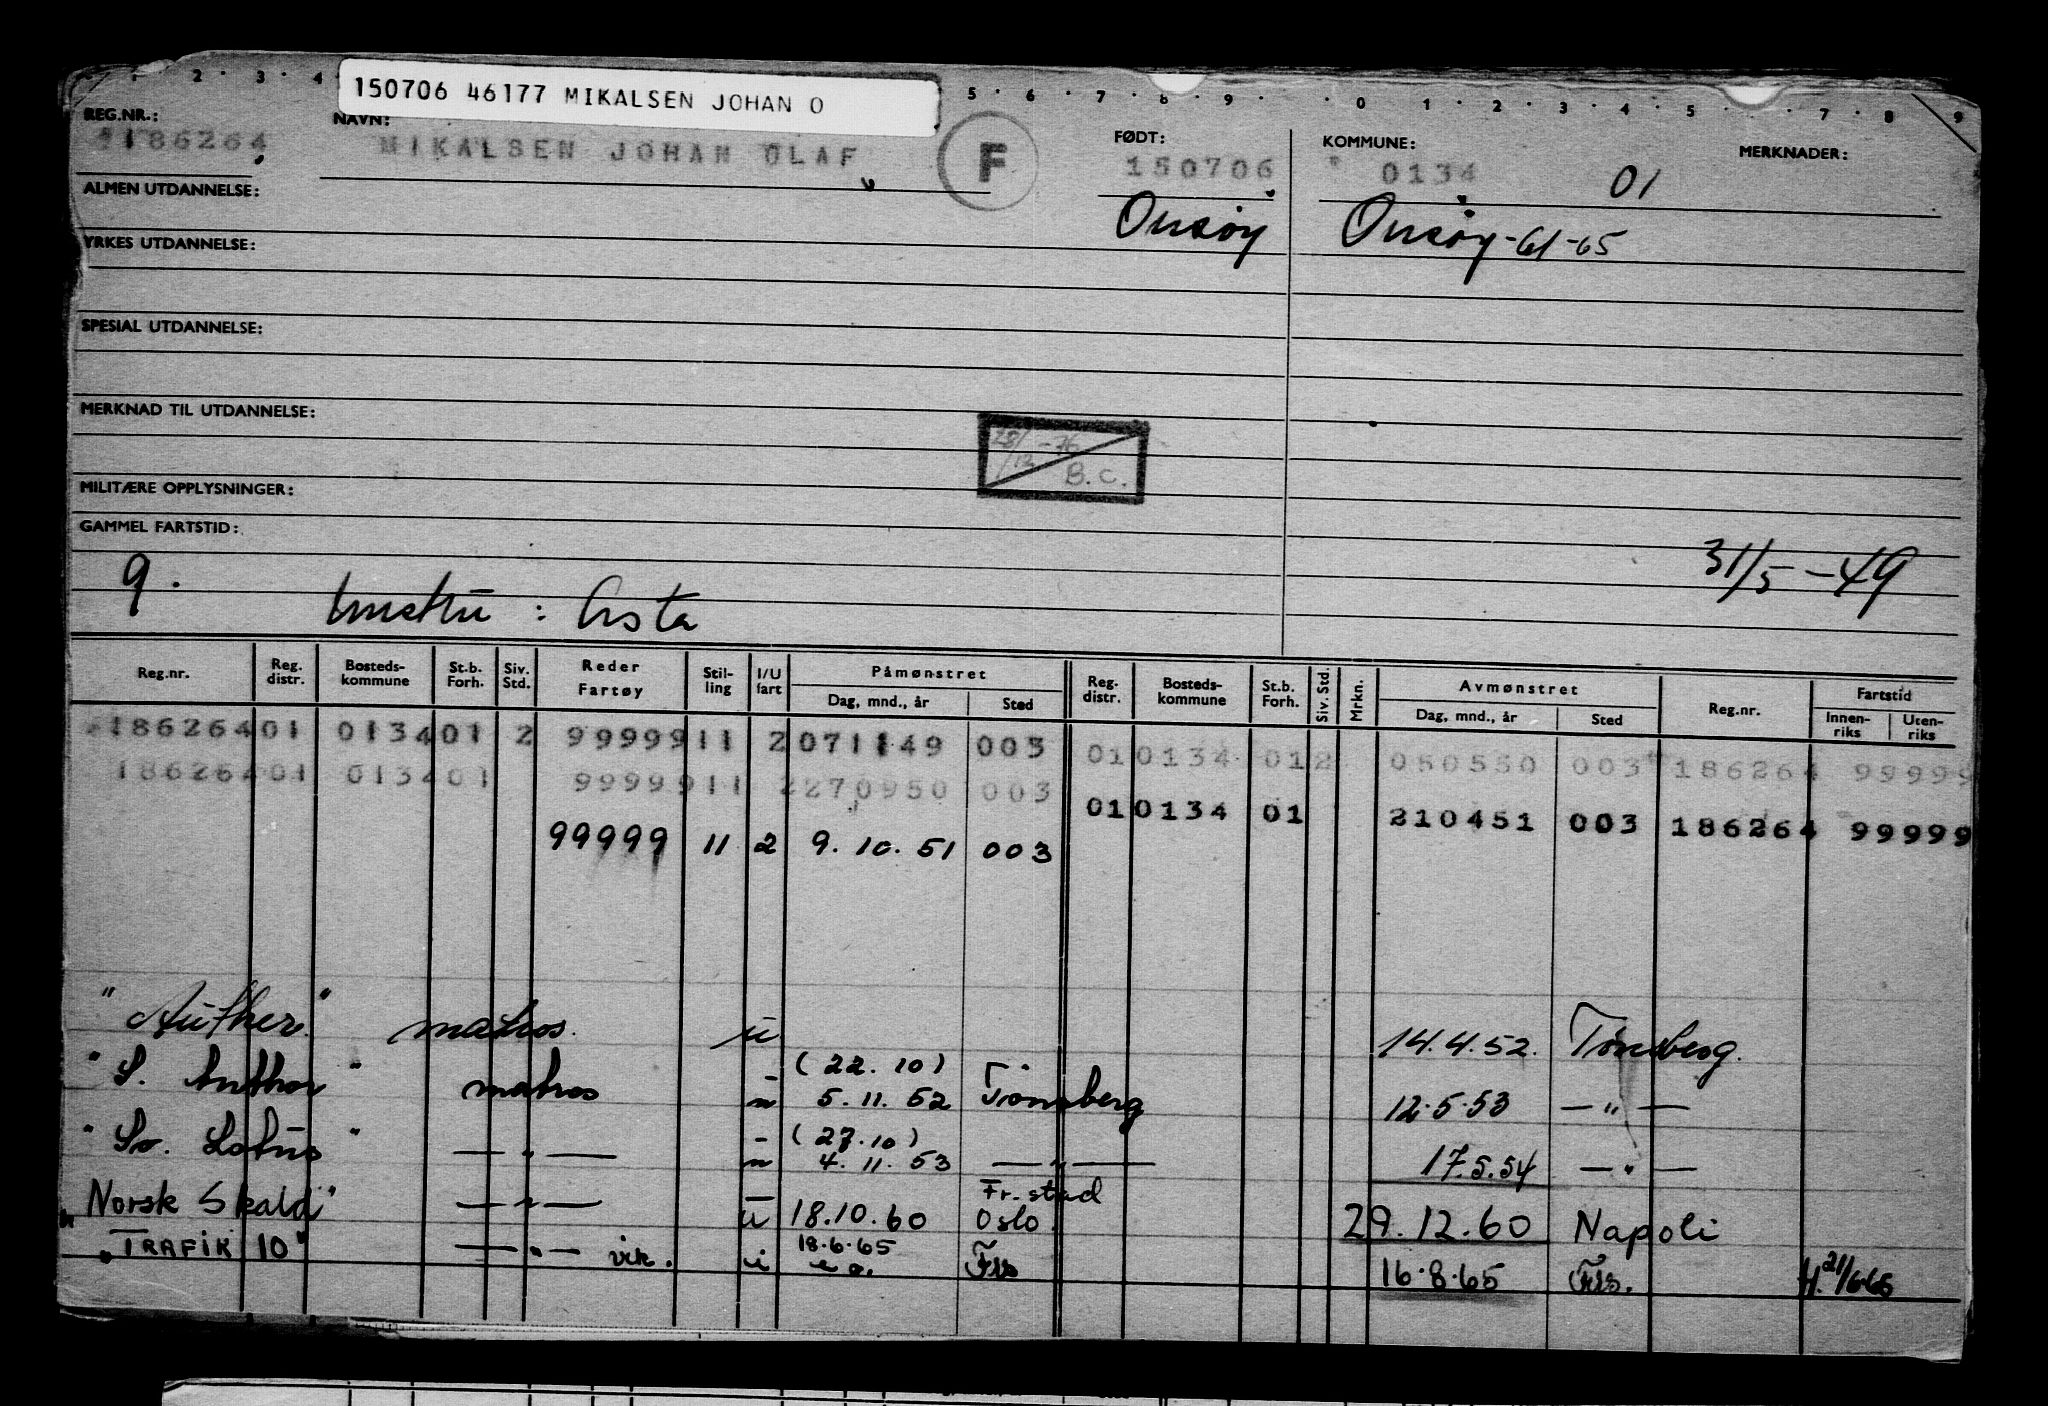 1 · 2 · 3 · 4 5 · 6 · 7 · 8 · 9 · · 0 · 1 · 2 · 3 · 4 · 5 · 7 · 8 9
150706 46177 MIKALSEN JOHAN O
REG.NR.: NAVN: FØDT: KOMMUNE: MERKNADER:
186264 MIKALSEN JOHAN OLAF F 150706 0134 01
ALMEN UTDANNELSE:
Onsøy Onsøy-61-65
YRKES UTDANNELSE:
SPESIAL UTDANNELSE:
MERKNAD TIL UTDANNELSE:
28/12 -76
B.C.
MILITÆRE OPPLYSNINGER:
GAMMEL FARTSTID:
31/5 -49
9. hustru : Asta
Reg.nr. Reg. distr. Bosteds-kommune St.b. Forh. Siv. Std. Reder Fartøy Stil-ling I/U fart Påmønstret Dag, mnd., år Sted Reg. distr. Bosteds-kommune St.b. Forh. Siv. Std. Mrkn. Avmønstret Dag, mnd., år Sted Reg.nr. Fartstid Innen-riks Uten-riks
186264 01 0134 01 2 99999 11 2 071149 003 01 0134 01 2 050550 003 186264 99999
186264 01 0134 01 99999 11 2 270950 003 01 0134 01 210451 003 186264 99999
99999 11 2 9.10.51 003
" " matros. ü 14.4.52. Tønsberg.
(22.10)
"S. Anthor" matros 5.11.52 Tønsberg 12.5.53 — " —
(27.10)
"So. Lotus" — " — 4.11.53 — " — 17.5.54 — " —
Fr.stad
"Norsk Skald" — " — ü 18.10.60 Oslo. 29.12.60 Napoli
18.6.65
"TRAFIK 10" — " — vik. i e.o. Frs 16.8.65 Frs. H.21/6-65